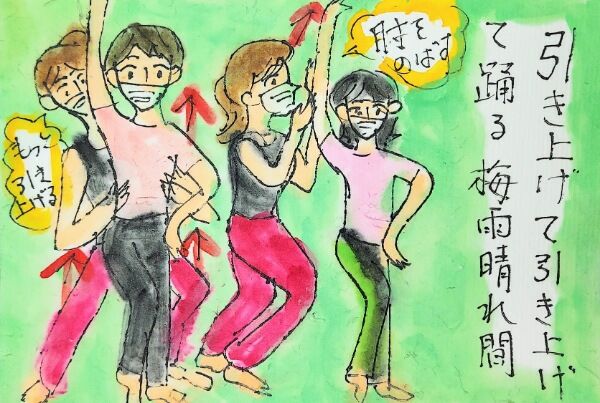 引き上げて引き上げ
て踊る梅雨晴れ間
肘を
のばす
もっと
引き
上げる